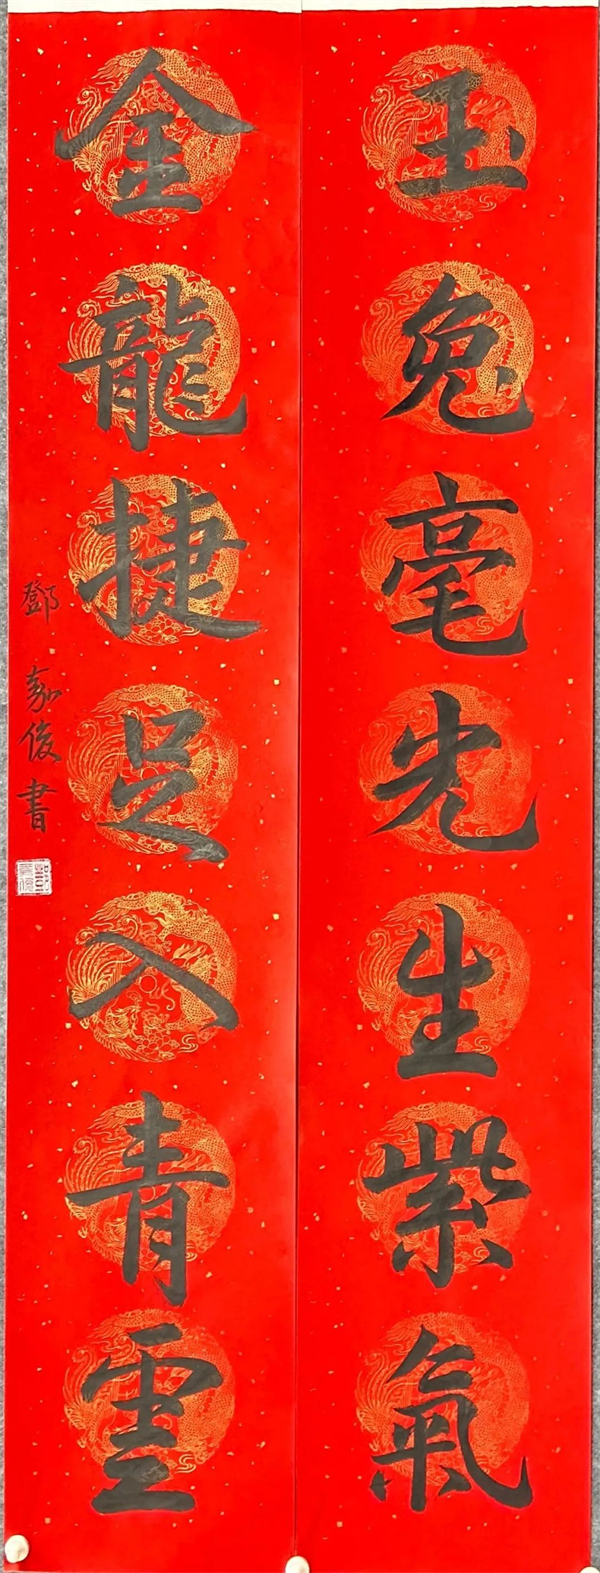 玉兔毫先生紫氣
金龍捷足入青雲
鄧嘉俊書